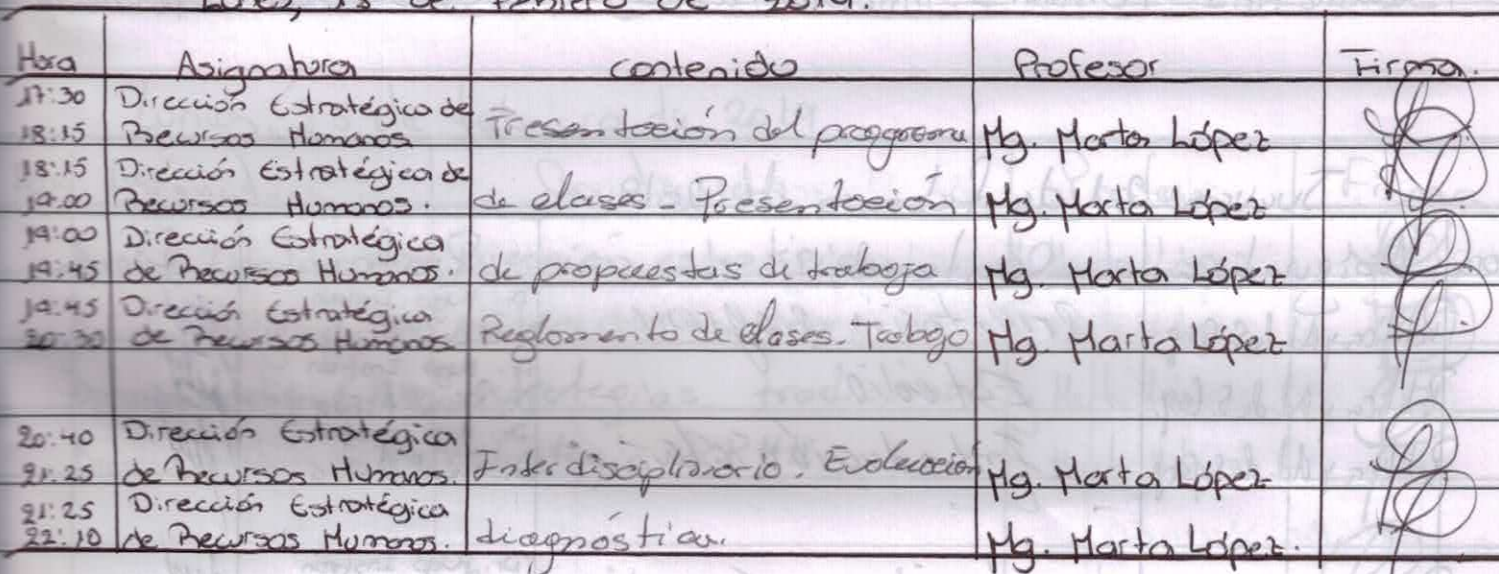 Lunes, 18 de febrero de 2019.
Hora Asignatura contenido Profesor Firma.
17:30 Dirección Estratégica de
18:15 Recursos Humanos Presentación del programa Mg. Marta López
18:15 Dirección Estratégica de
19:00 Recursos Humanos. de clases - Presentación Mg. Marta López
19:00 Dirección Estratégica
19:45 de Recursos Humanos. de propuestas de trabajo Mg. Marta López
19:45 Dirección Estratégica
20:30 de Recursos Humanos Reglamento de clases. Trabajo Mg. Marta López
20:40 Dirección Estratégica
21:25 de Recursos Humanos. Interdisciplinario. Evaluación Mg. Marta López
21:25 Dirección Estratégica
22:10 de Recursos Humanos. diagnóstica. Mg. Marta López.